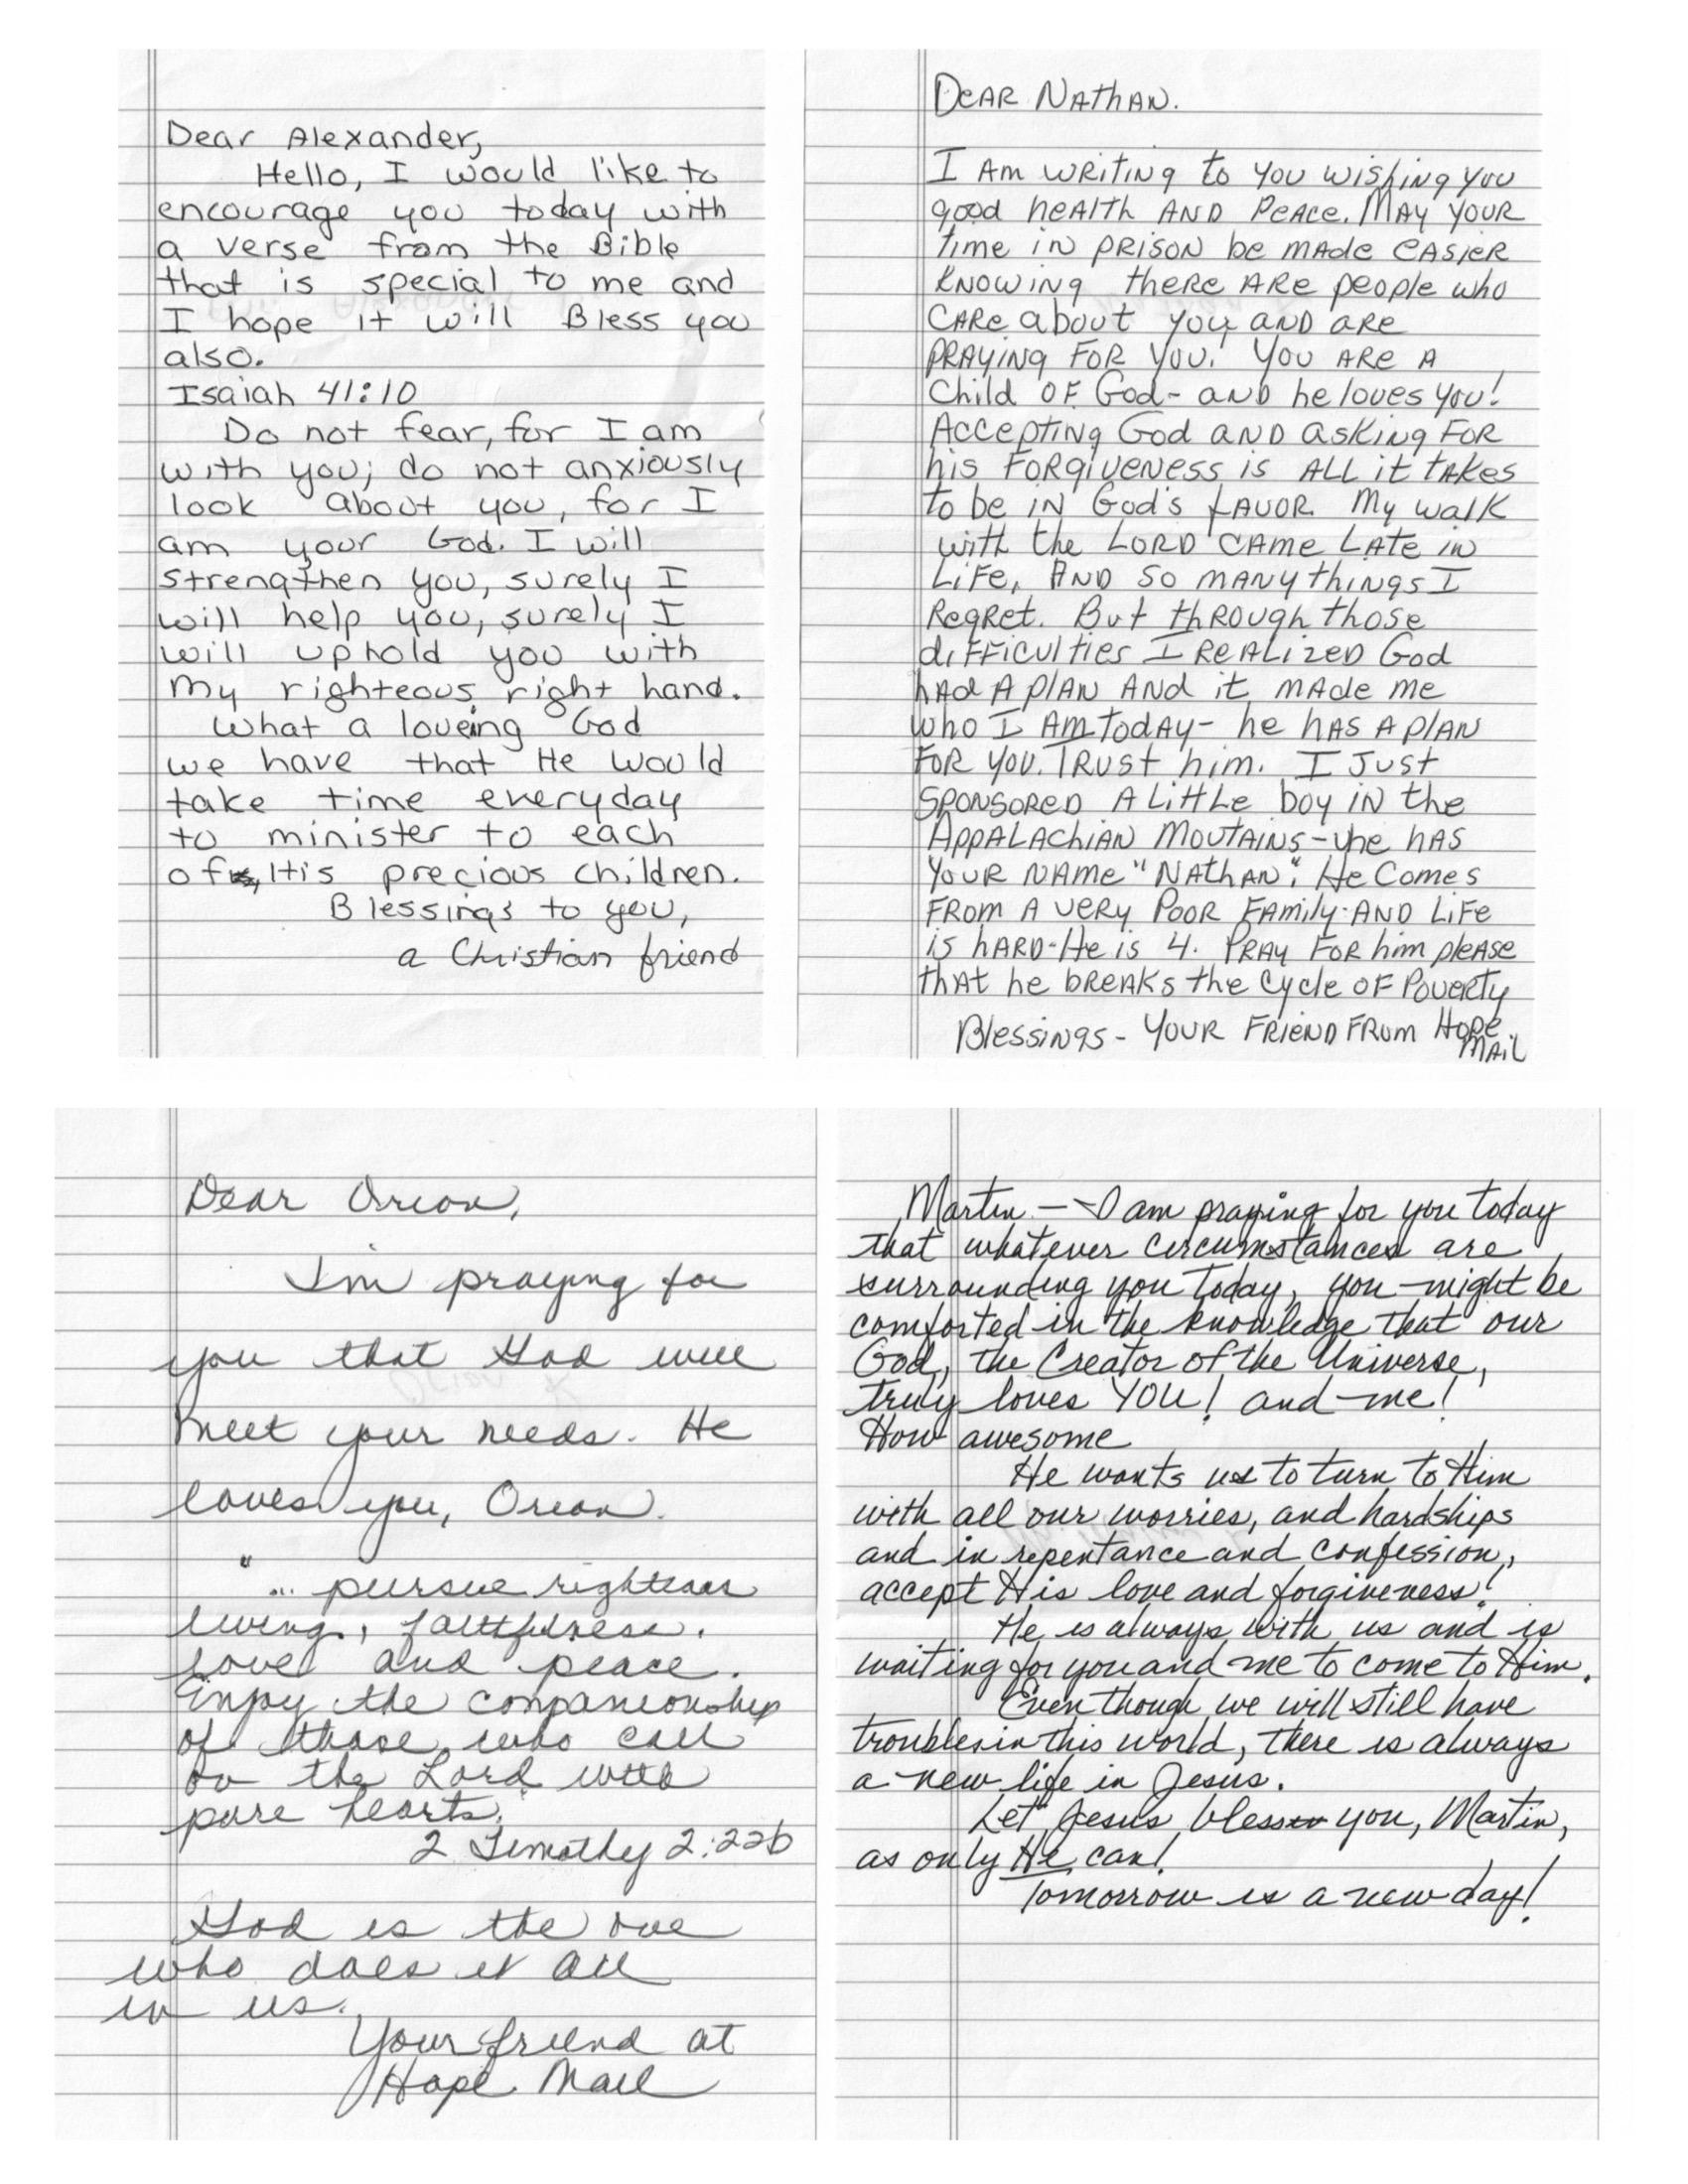 Dear Alexander,
Hello, I would like to
encourage you today with
a verse from the Bible
that is special to me and
I hope it will Bless you
also.
Isaiah 41:10
Do not fear, for I am
with you; do not anxiously
look about you, for I
am your God. I will
strengthen you, surely I
will help you, surely I
will uphold you with
my righteous right hand.
What a loveing God
we have that He would
take time everyday
to minister to each
of us, His precious children.
Blessings to you,
a Christian friend
Dear Nathan.
I am writing to you wishing you
good health and peace. May your
time in prison be made easier
knowing there are people who
care about you and are
praying for you. You are a
child of God - and he loves you!
Accepting God and asking for
his forgiveness is all it takes
to be in God's favor. My walk
with the Lord came late in
life, and so many things I
regret. But through those
difficulties I realized God
had a plan and it made me
who I am today - he has a plan
for you. Trust him. I just
sponsored a little boy in the
Appalachian Moutains - he has
your name "Nathan". He comes
from a very poor family and life
is hard - He is 4. Pray for him please
that he breaks the cycle of poverty
Blessings - Your friend from Hope
Mail
Dear Orion,
I'm praying for
you that God will
meet your needs. He
loves you, Orion.
"... pursue righteous
living, faithfulness,
love and peace.
Enjoy the companionship
of those who call
on the Lord with
pure hearts.
2 Timothy 2:22b
God is the one
who does it all
in us.
Your friend at
Hope Mail
Martin — I am praying for you today
that whatever circumstances are
surrounding you today, you might be
comforted in the knowledge that our
God, the Creator of the Universe,
truly loves YOU! and me!
How awesome
He wants us to turn to Him
with all our worries, and hardships
and in repentance and confession,
accept His love and forgiveness!
He is always with us and is
waiting for you and me to come to Him.
Even though we will still have
troubles in this world, there is always
a new life in Jesus.
Let Jesus bless you, Martin,
as only He can!
Tomorrow is a new day!